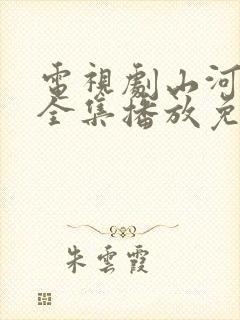 電視劇山河
全集播放免
朱雲霞